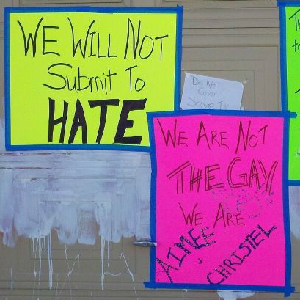 WE WILL NOT
Submit To
HATE
WE ARE NOT
THE GAY
WE ARE
AIMEE
CHRISTEL